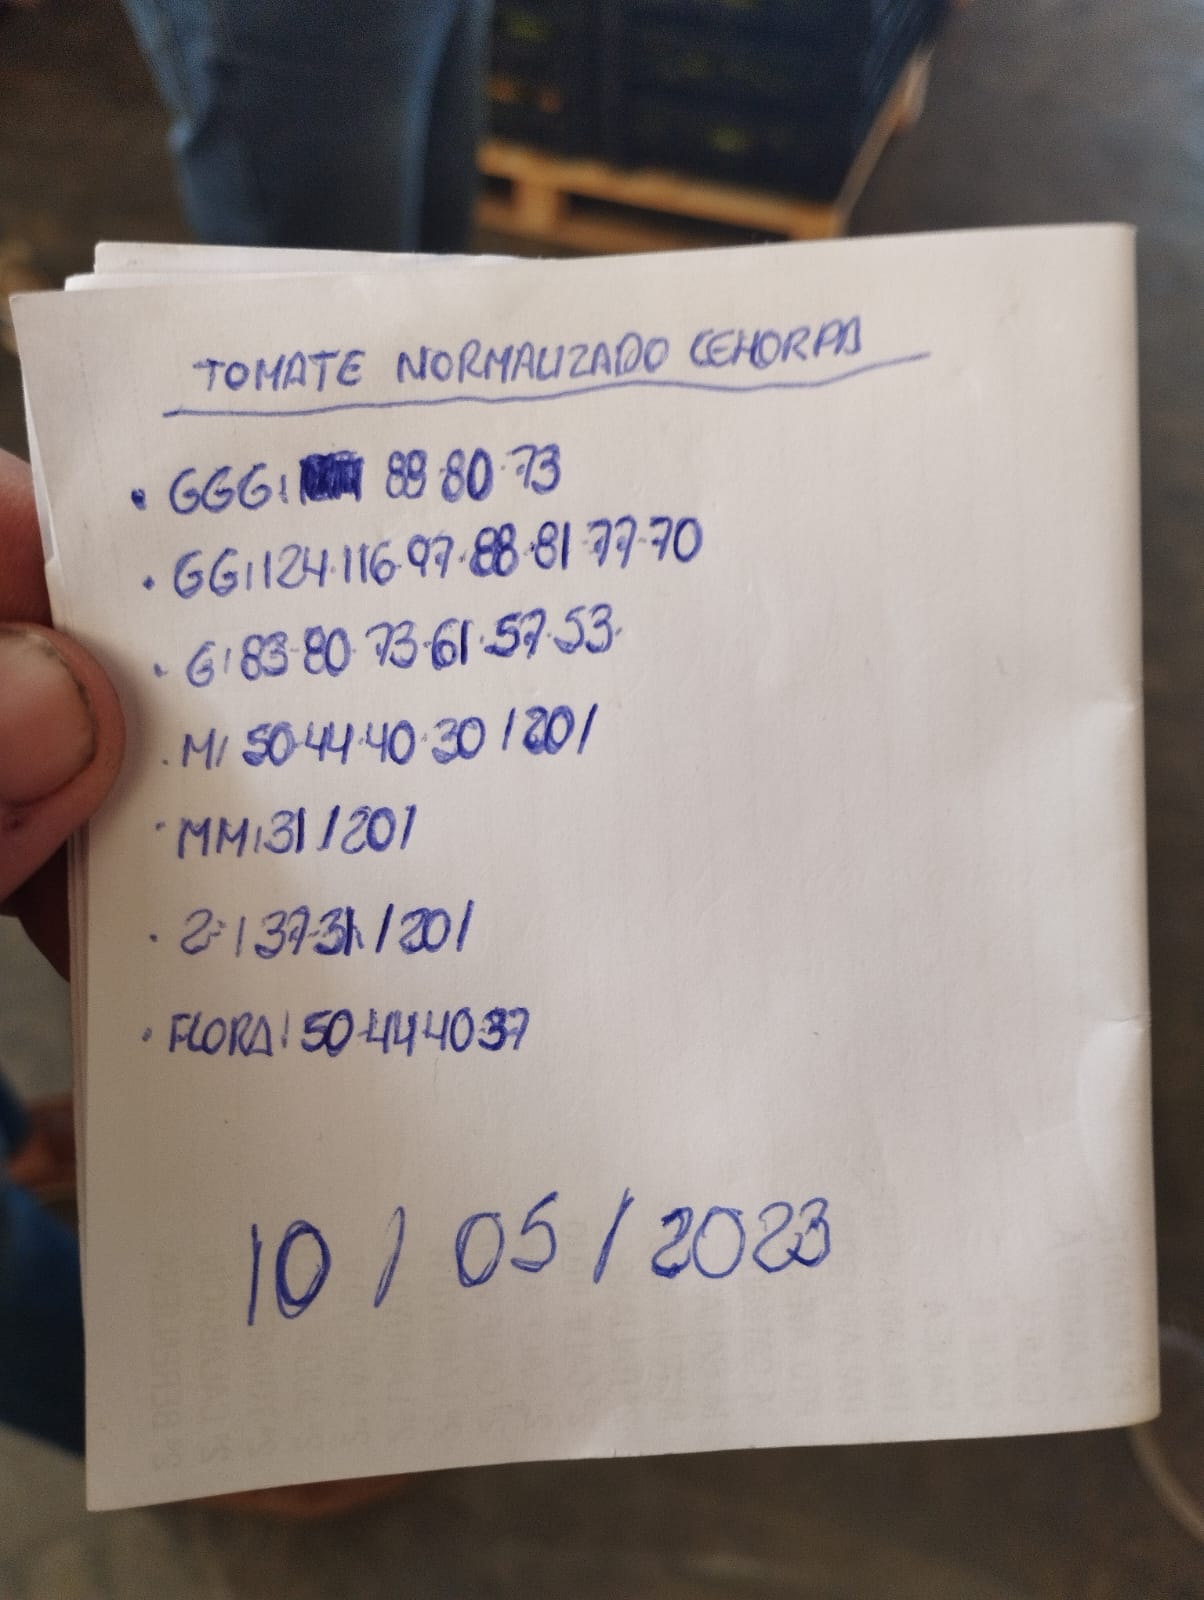 TOMATE NORMALIZADO CEHORPA
• GGG: 88·80·73
• GG:124·116·97·88·81·77·70
• G:83·80·73·61·57·53·
• M: 50·44·40·30/20/
• MM:31/20/
• 2ª:37·31/20/
• FLORA:50·44·40·37
10/05/2023